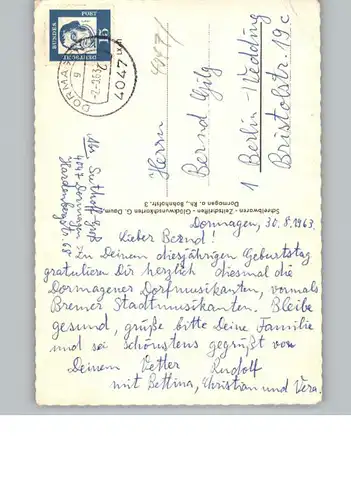 DEUTSCHE
BUNDES
POST
15
DORMAGEN
-2.9.63
4047
Herrn
Bernd Gilg
1 Berlin-Wedding
Bristolstr. 19c
4047 Dormagen
Hardenbergstr. 68
Schreibwaren - Zeitschriften - Glückwunschkarten G. Daum
Dormagen a. Rh., Bahnhofstr. 3
Dormagen, 30.8.1963
Lieber Bernd!
Zu Deinem diesjährigen Geburtstag
gratulieren Dir herzlich diesmal die
Dormagener Dorfmusikanten, vormals
Bremer Stadtmusikanten. Bleibe
gesund, grüße bitte Deine Familie
und sei schönstens gegrüßt von
Deinem Vetter Rudolf
mit Bettina, Christian und Vera.